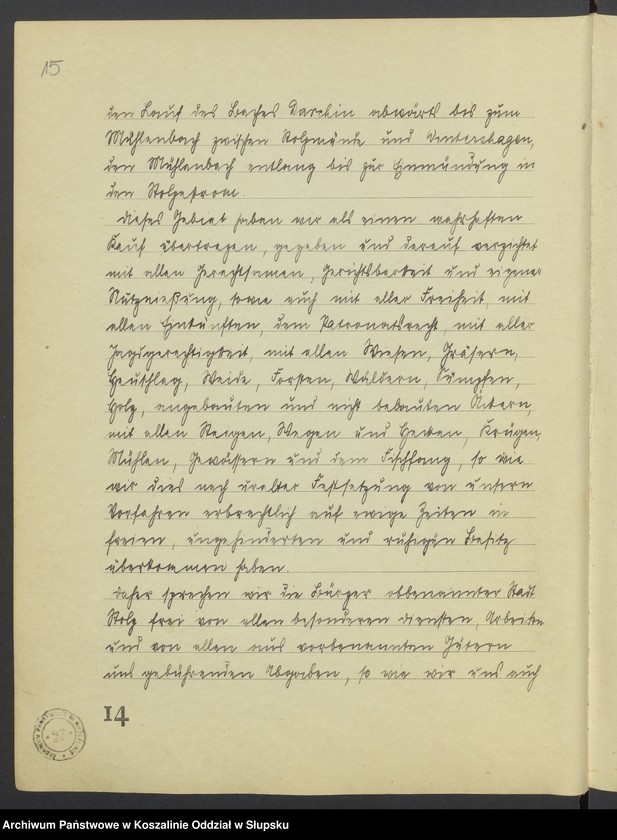 15
den Lauf des Baches Darchin abwärts bis zum
Mühlenbach zwischen Stolpmünde und Wintershagen,
den Mühlenbach entlang bis zur Einmündung in
den Stolpestrom.
Dieses Gebiet haben wir als einen wahrhaften
Kauf übertragen, gegeben und darauf verzichtet
mit allen Gerechtsamen, Gerichtsbarkeit und eigener
Nutznießung, sowie auch mit aller Freiheit, mit
allen Einkünften, dem Patronatsrecht, mit aller
Jagdgerechtigkeit, mit allen Wiesen, Gräsern,
Heuschlag, Weide, Forsten, Wäldern, Sümpfen,
Holz, angebauten und nicht bebauten Äckern,
mit allen Stegen, Wegen und Hecken, Krügen,
Mühlen, Gewässern und dem Fischfang, so wie
wir dies nach uralter Festsetzung von unsern
Vorfahren erbrechtlich auf ewige Zeiten in
freien, ungehinderten und ruhigen Besitz
überkommen haben.
Daher sprechen wir die Bürger obbenannter Stadt
Stolp frei von allen besonderen Diensten, Arbeiten
und von allen aus vorbenannten Gütern
uns gebührenden Abgaben, so wie wir uns auch
14
Archiwum Państwowe w Koszalinie Oddział w Słupsku